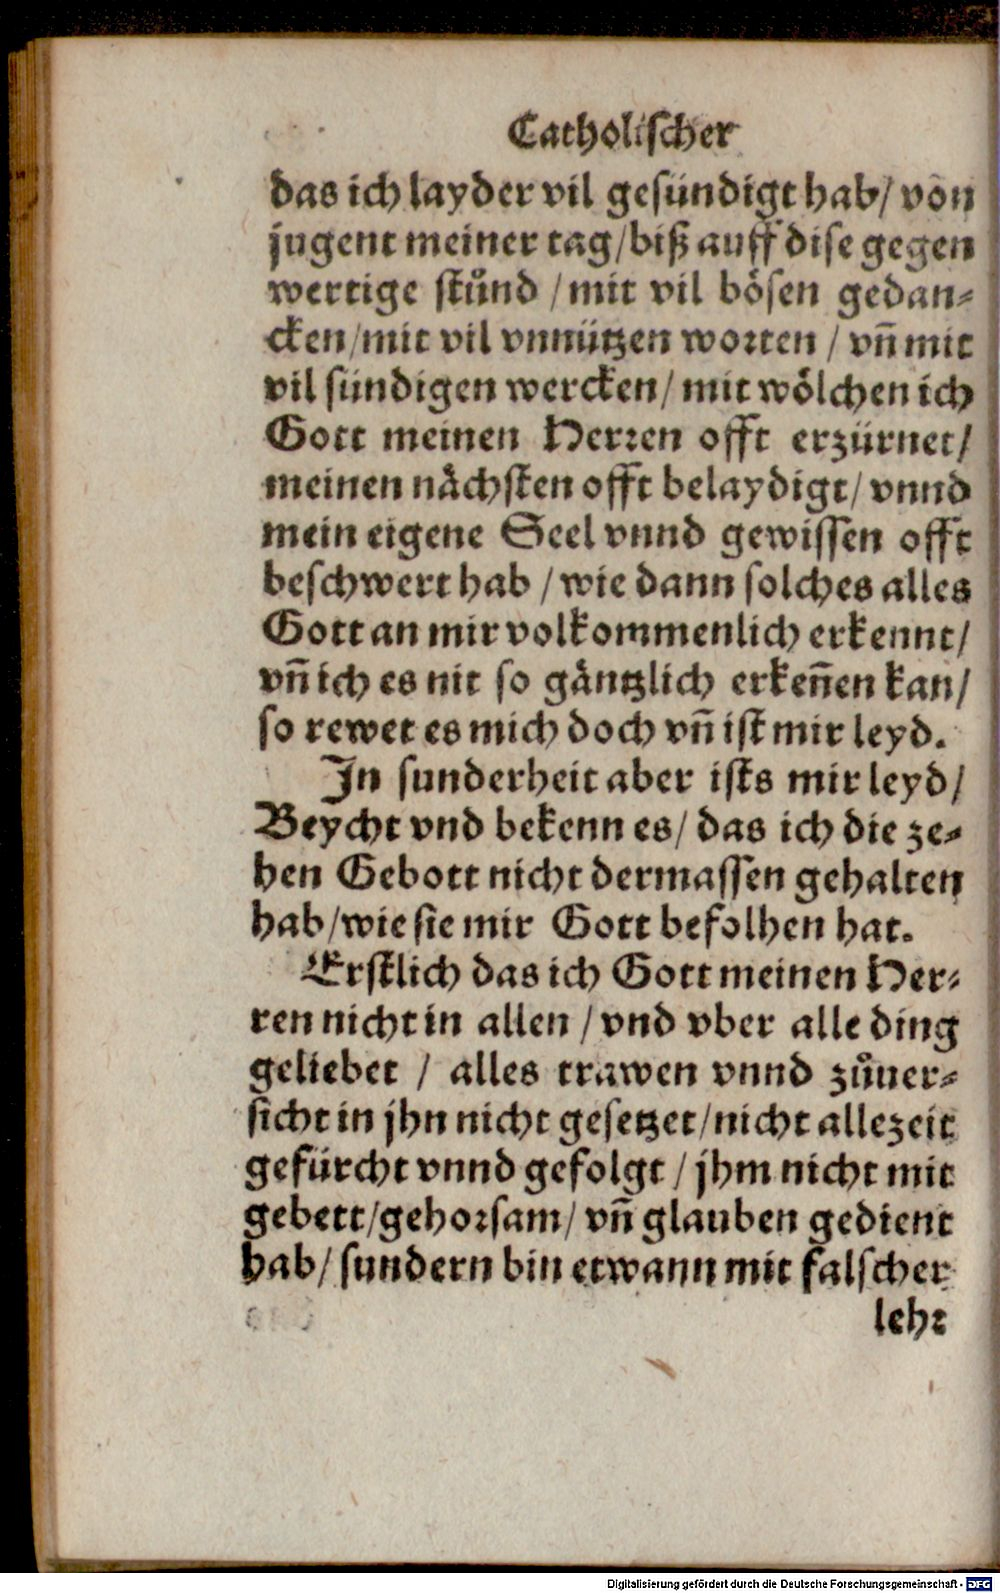 Catholischer
das ich layder vil gesündigt hab/ von
jugent meiner tag/biß auff dise gegen
wertige stůnd /mit vil bösen gedan-
cken/mit vil vnnützen worten / vñ mit
vil sündigen wercken/ mit wölchen ich
Gott meinen Herren offt erzürnet/
meinen nächsten offt belaydigt/ vnnd
mein eigene Seel vnnd gewissen offt
beschwert hab /wie dann solches alles
Gott an mir volkommenlich erkennt/
vñ ich es nit so gäntzlich erkeñen kan/
so rewet es mich doch vñ ist mir leyd.
In sunderheit aber ists mir leyd/
Beycht vnd bekenn es/ das ich die ze-
hen Gebott nicht dermassen gehalten
hab/wie sie mir Gott befolhen hat.
Erstlich das ich Gott meinen Her-
ren nicht in allen /vnd vber alle ding
geliebet / alles trawen vnnd zůuer-
sicht in jhn nicht gesetzet/nicht allezeit
gefürcht vnnd gefolgt /jhm nicht mit
gebett/gehorsam/ vñ glauben gedient
hab/ sundern bin etwann mit falscher
lehr
Digitalisierung gefördert durch die Deutsche Forschungsgemeinschaft - DFG